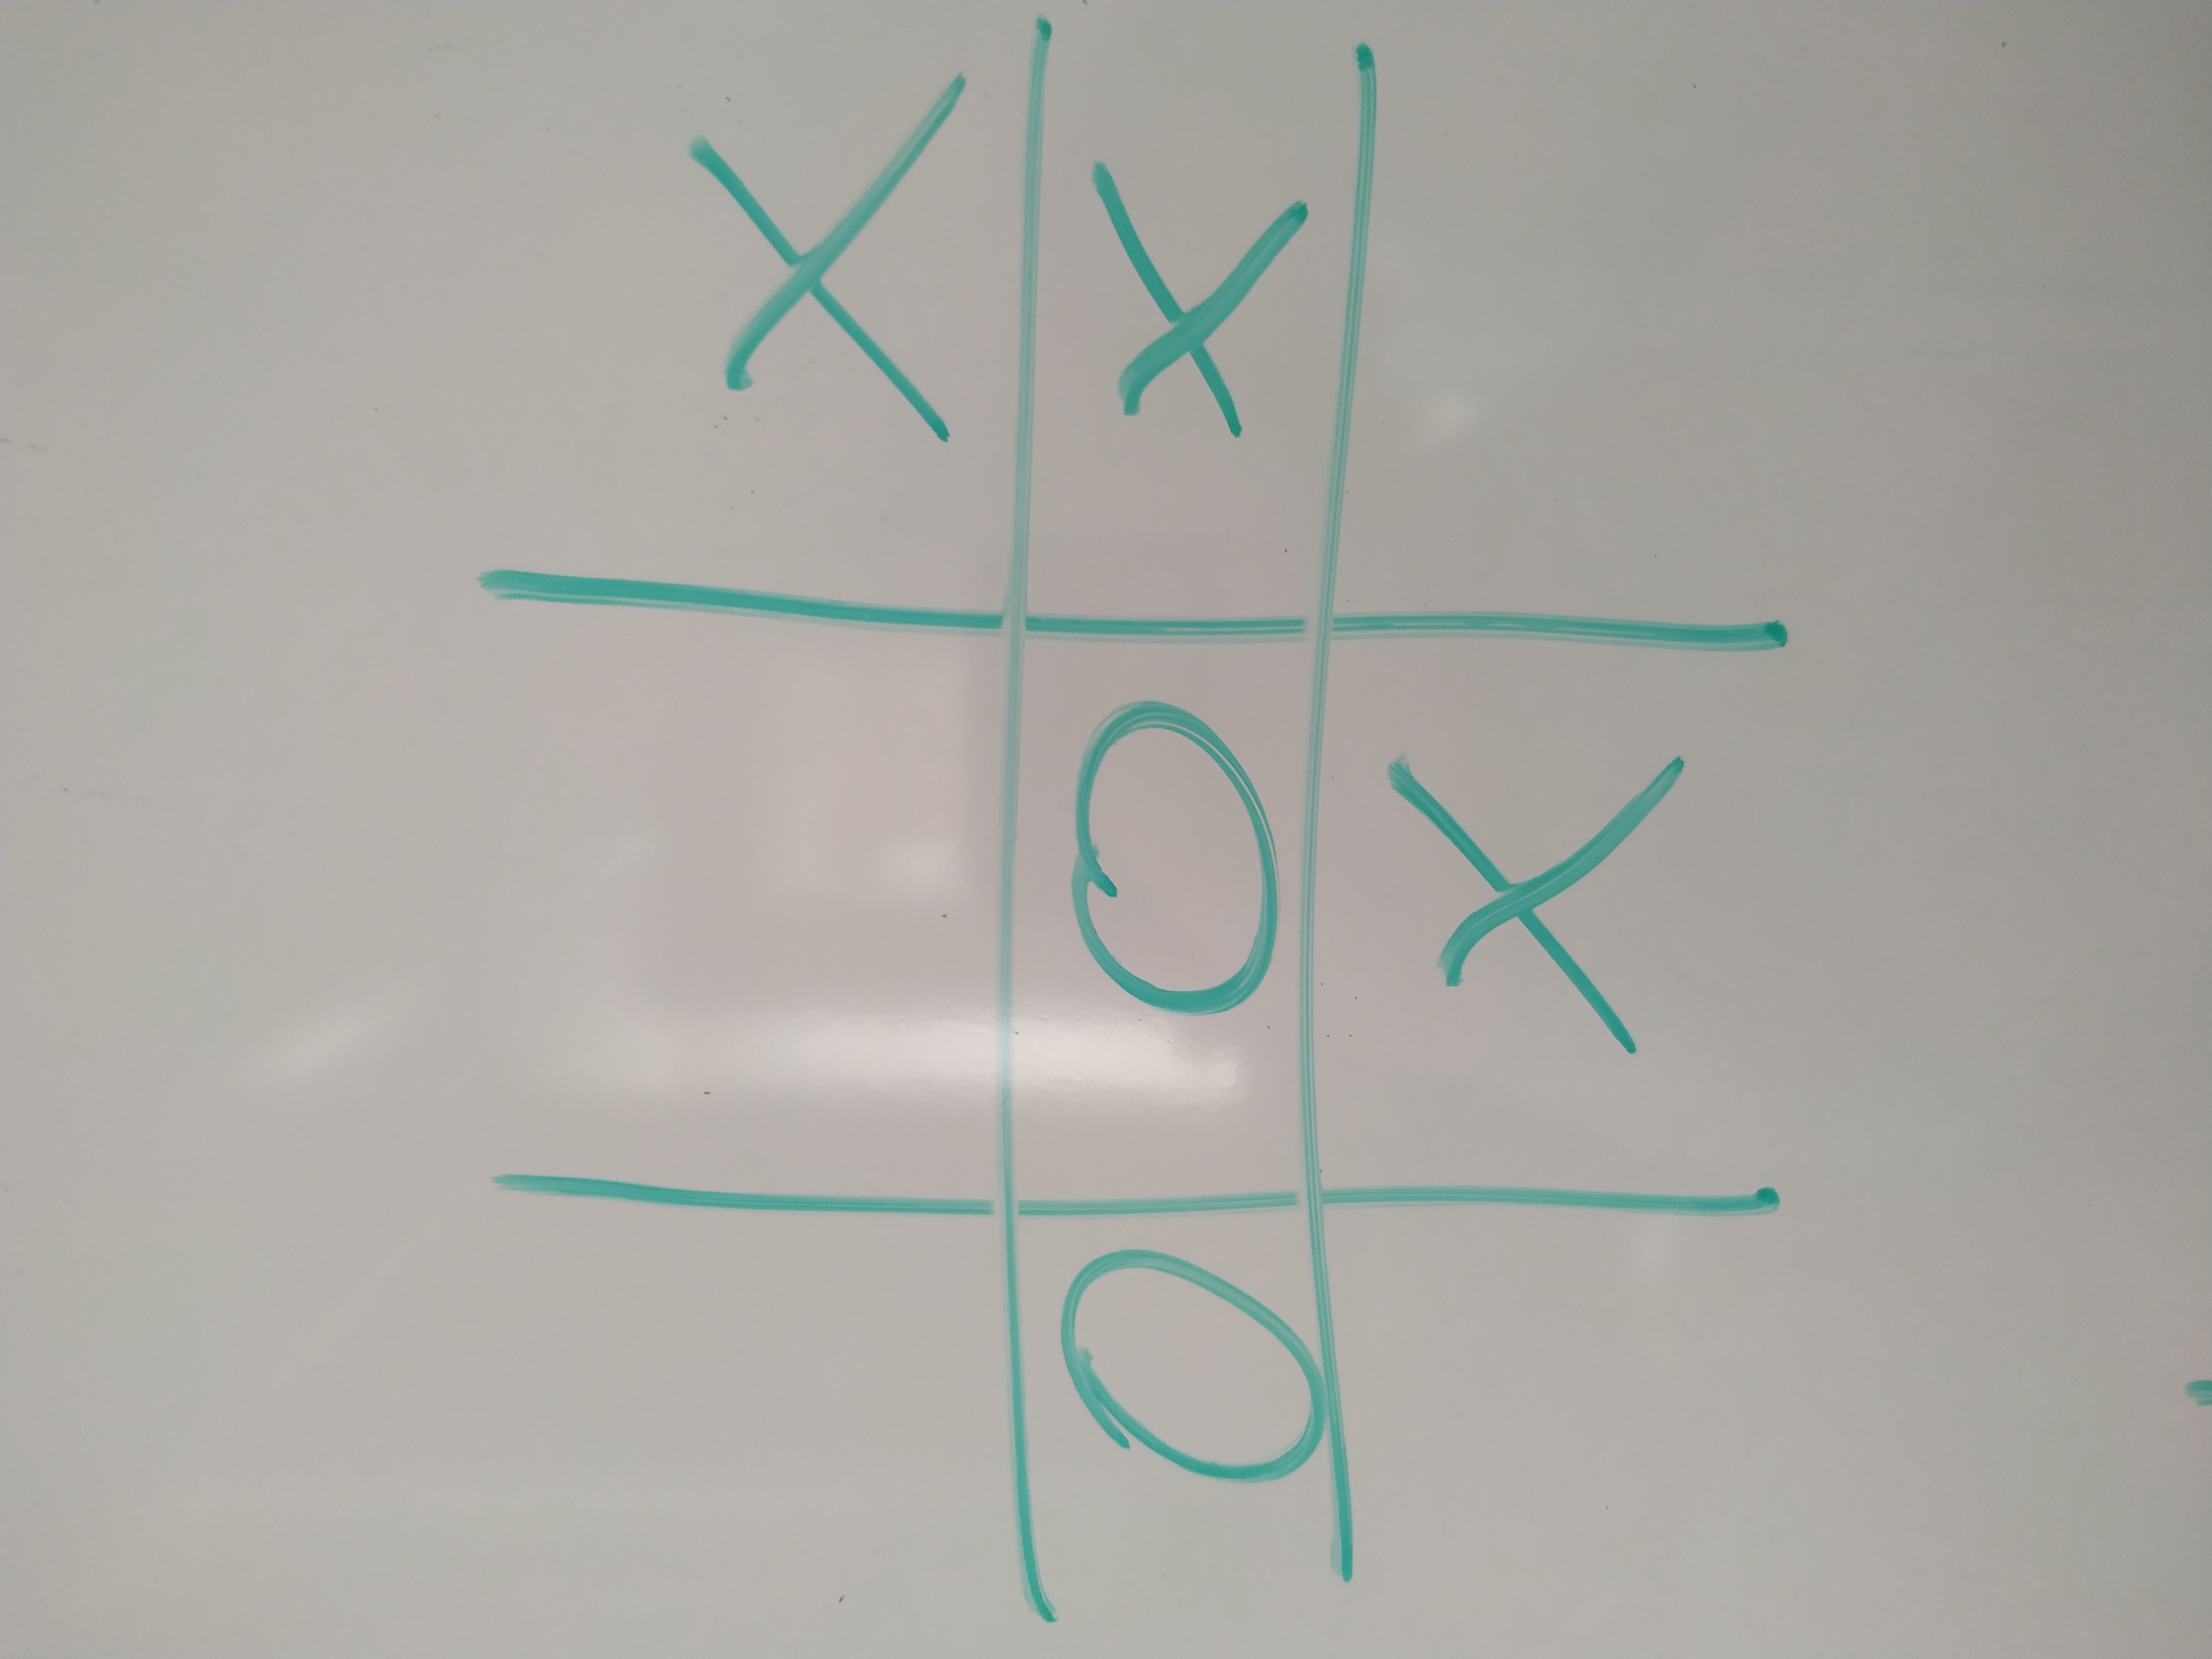 X
O O X
X